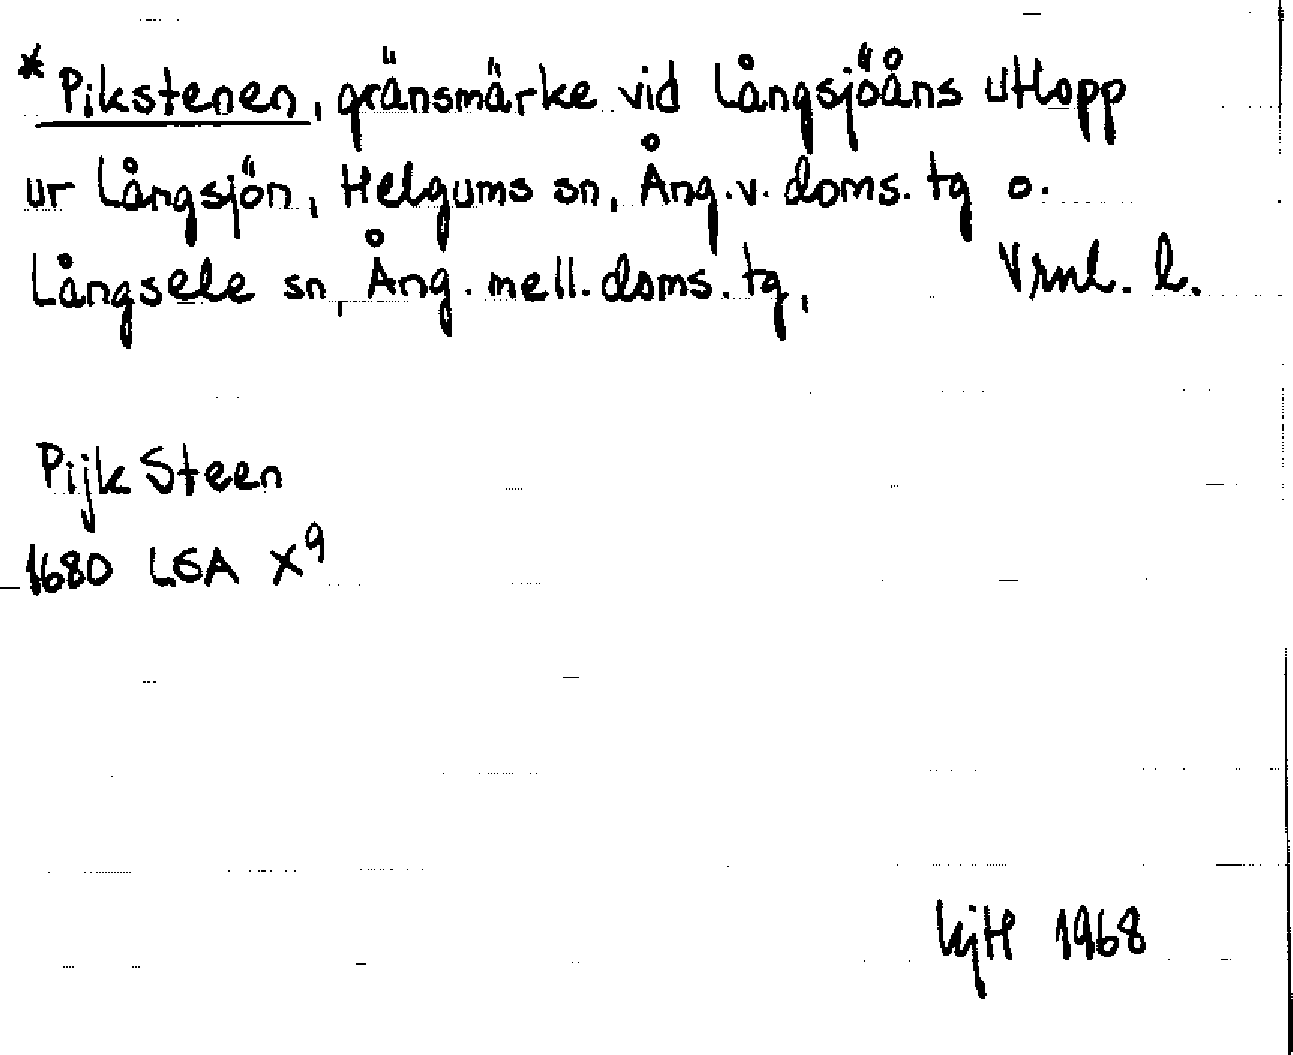 *Pikstenen, gränsmärke vid Långsjöåns utlopp
ur Långsjön, Helgums sn, Ång. v. doms. tg o.
Långsele sn, Ång. mell. doms. tg, Vrml. l.
Pijk Steen
1680 LSA X⁹
KjH 1968